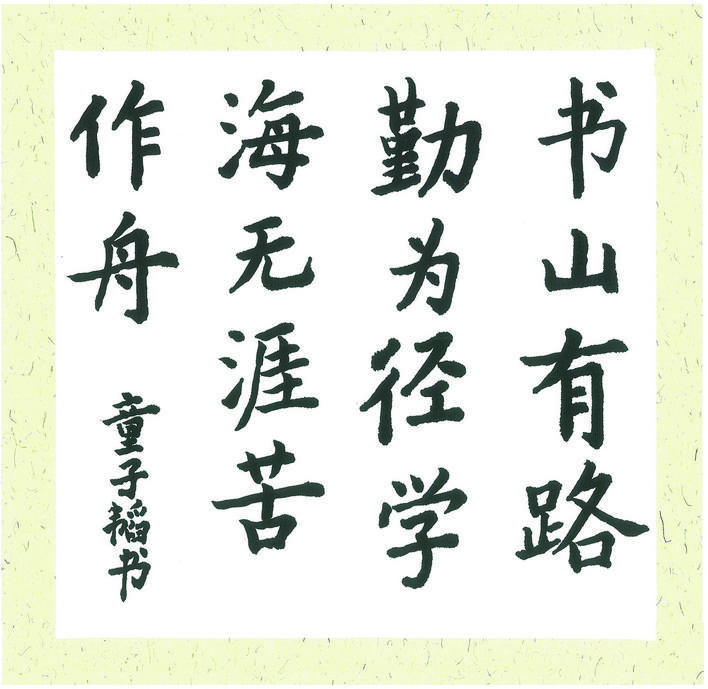 书山有路
勤为径学
海无涯苦
作舟
童子韬书